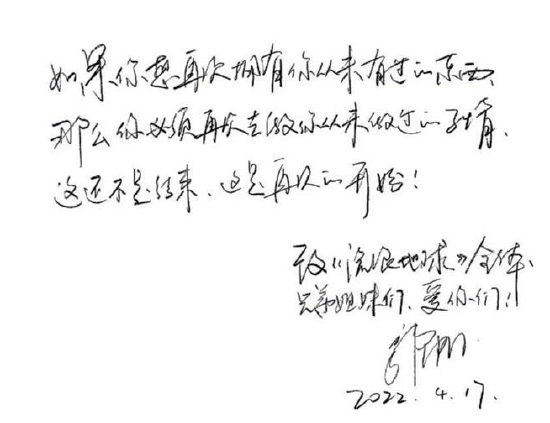 如果你想再次拥有你从未有过的东西、
那么你必须再次去做你从未做过的事情、
这还不是结束、这是再次的开始！
致《流浪地球》全体、
兄弟姐妹们、爱你们！
2022.4.17.